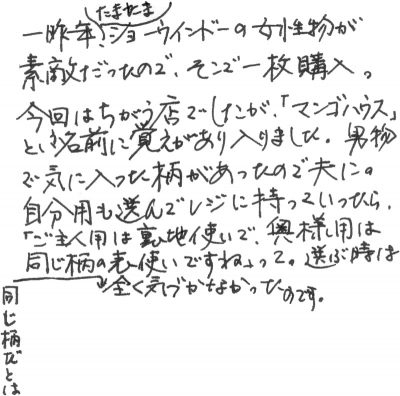 一昨年、たまたまショーウインドーの女性物が
素敵だったので、そこで一枚購入。
今回はちがう店でしたが、「マンゴハウス」
という名前に覚えがあり入りました。男物
で気に入った柄があったので夫に。
自分用も選んでレジに持っていったら、
「ご主人用は裏地使いで、奥様用は
同じ柄の表使いですね」って。選ぶ時は
同じ柄だとは
全く気づかなかったのです。